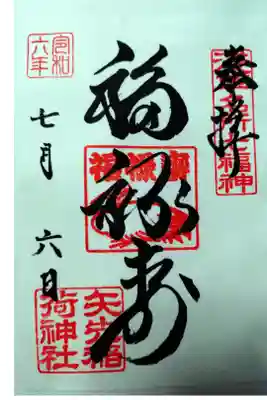 奉拝
七福神
福禄寿
矢先稲
荷神社
令和
六年
七月 六日